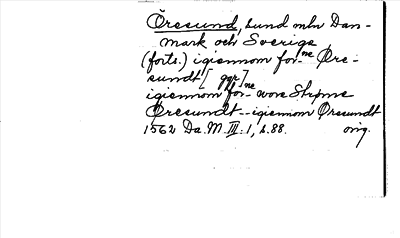 Öresund, sund mln Dan-
mark och Sverige
(forts.) igiennom for-ne Øre-
sundt [ gger]
igiennom for-ne wore Strømme
Øresundt -- igiennom Øresundt
1562 Da.M.III:1, s.88. orig.